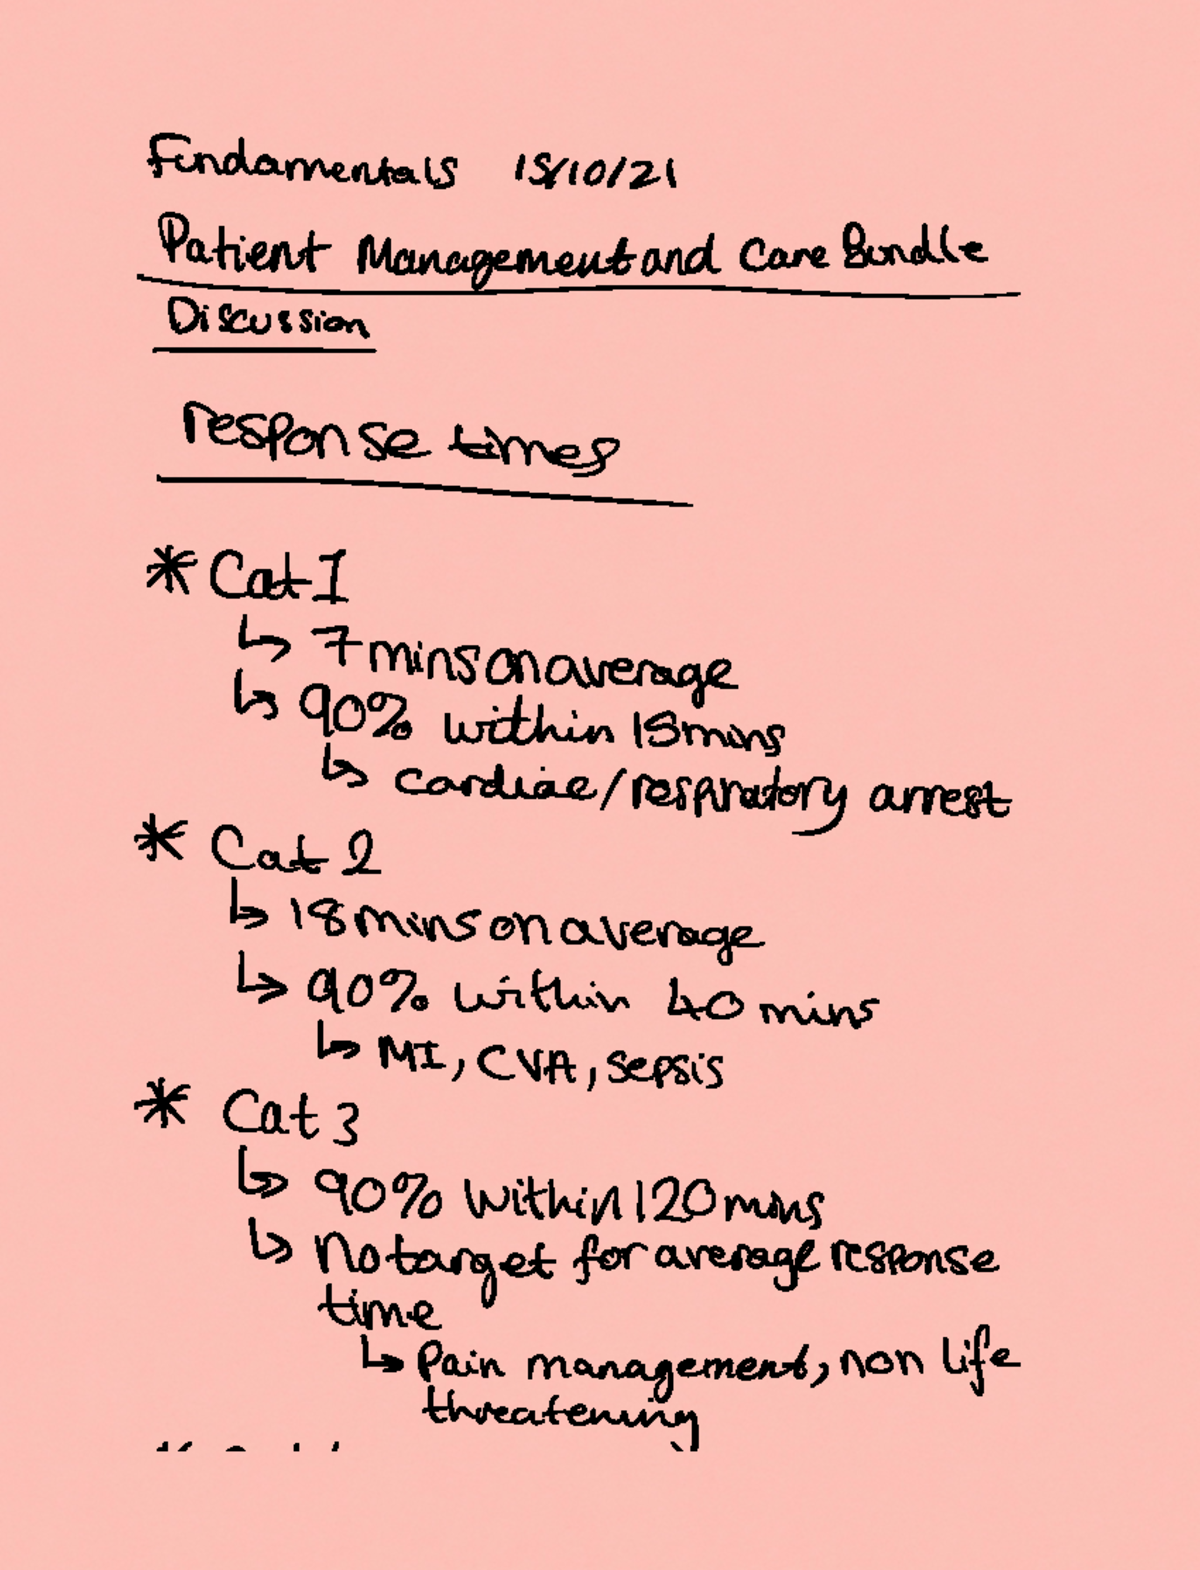 Fundamentals 15/10/21
Patient Management and Care Bundle
Discussion
response times
* Cat 1
↳ 7 mins on average
↳ 90% within 15 mins
↳ cardiac/respiratory arrest
* Cat 2
↳ 18 mins on average
↳ 90% within 40 mins
↳ MI, CVA, sepsis
* Cat 3
↳ 90% within 120 mins
↳ No target for average response
time
↳ Pain management, non life
threatening